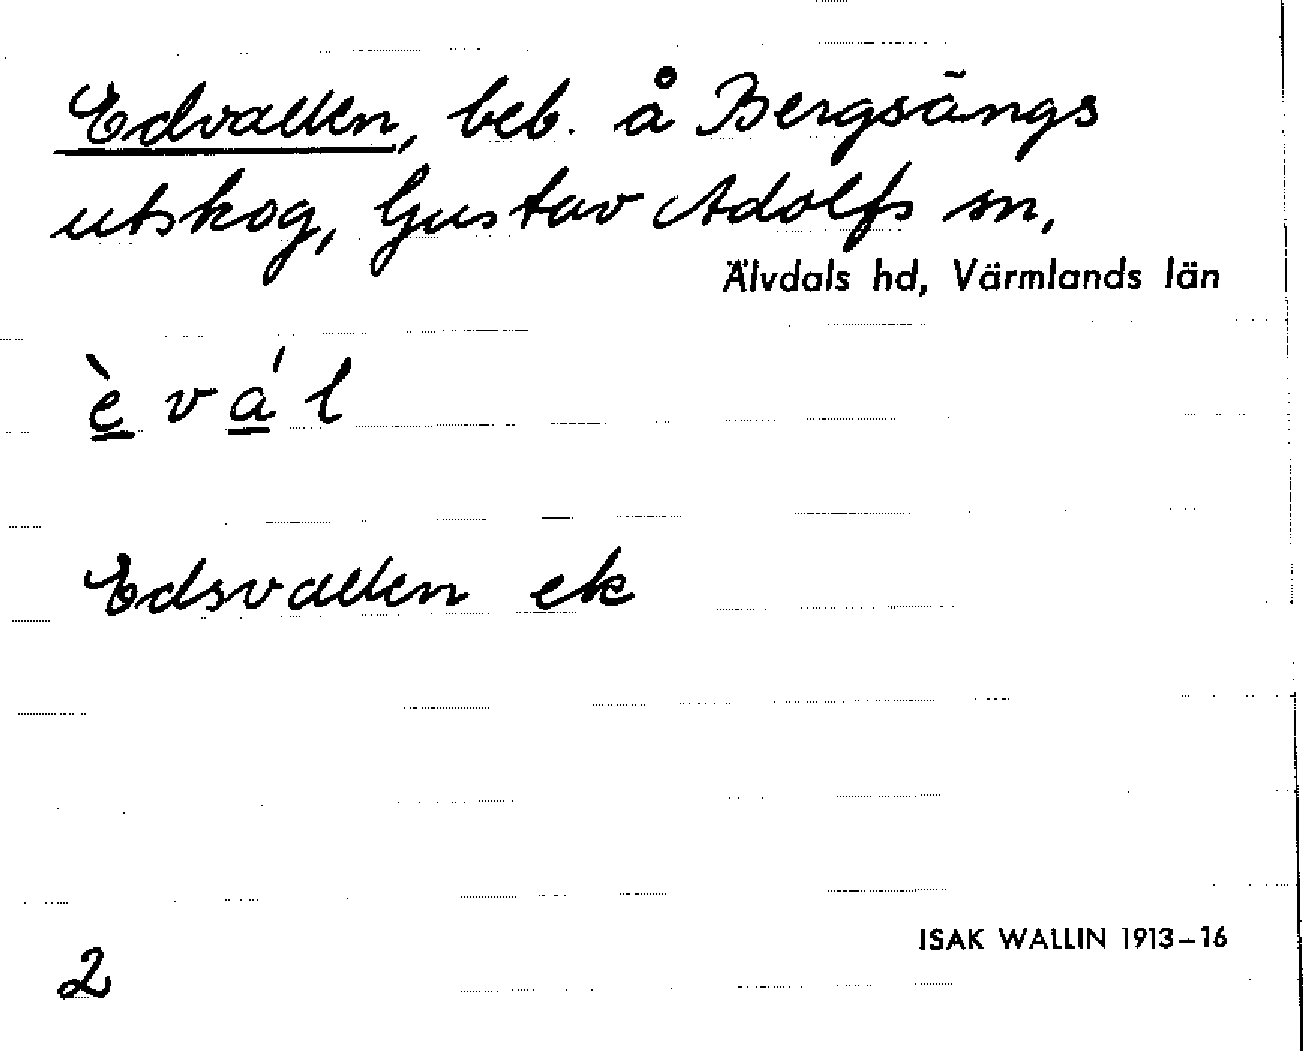 Edvallen, beb. å Bergsängs
utskog, Gustav Adolfs sn,
Älvdals hd, Värmlands län
è v á l
Edsvallen ek
ISAK WALLIN 1913–16
2